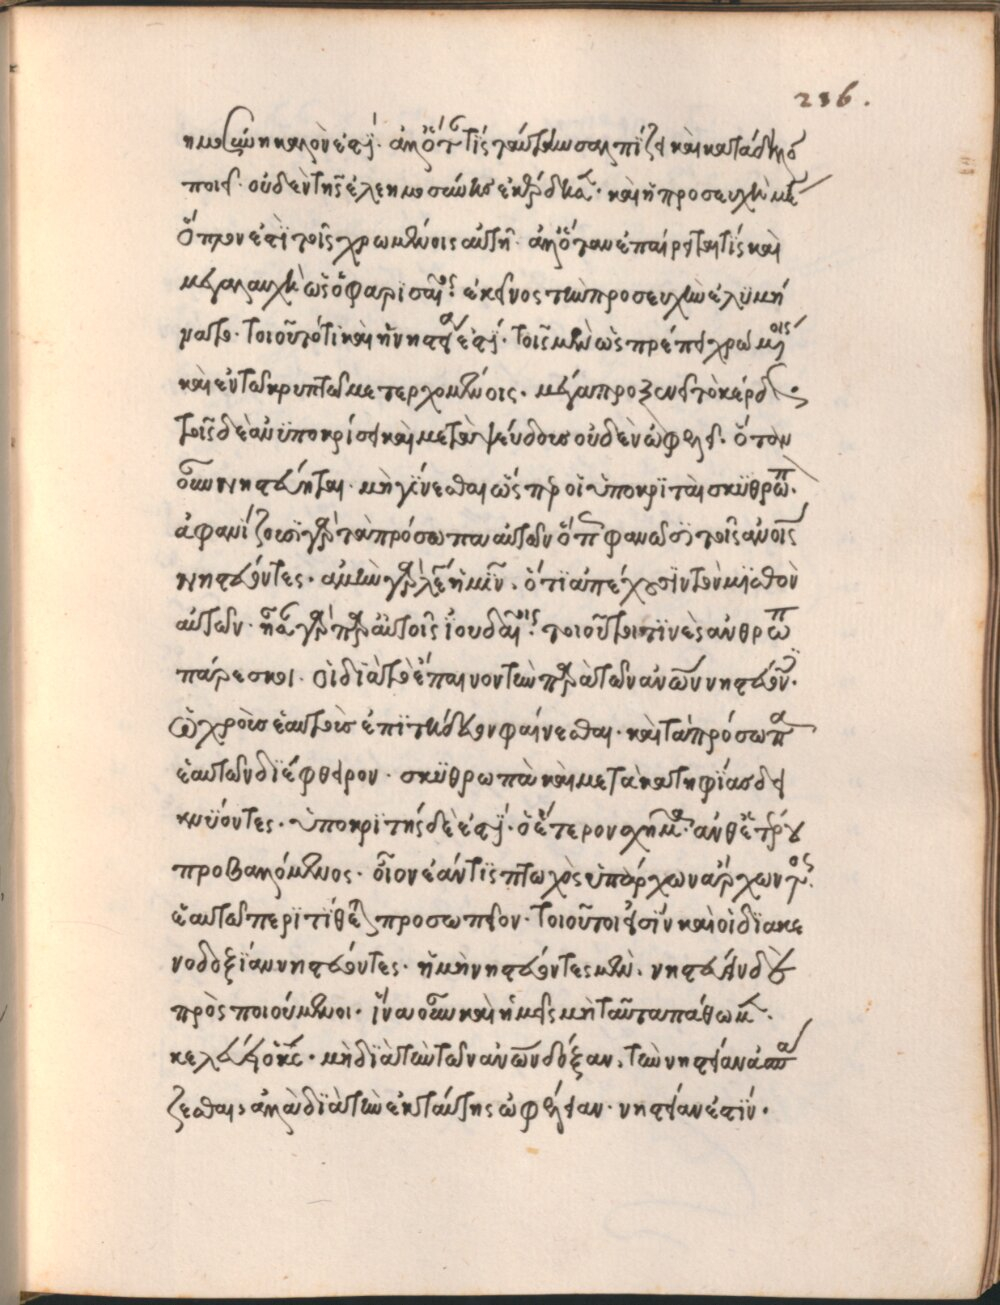 236.
ημοσύνη καλὸν ἐστί. ἀλλ' ὅταν τίς ταύτην σαλπίζει καὶ κατάδηλον
ποιεῖ. οὐδὲν τῆς ἐλεημοσύνης ἐκέρδησε. καὶ ἡ προσευχὴ μέγα
ὅπλον ἐστὶ τοῖς χρωμένοις αὐτῇ. ἀλλ' ὅταν ἐπαίρεται τίς καὶ
μεγαλαυχῇ ὡς ὁ φαρισαῖος ἐκεῖνος τὴν προσευχὴν ἐλυμή
νατο. τοιοῦτό τι καὶ ἡ νηστεία ἐστί. τοῖς μὲν ὡς πρέπει χρωμένοις
καὶ ἐν τῷ κρυπτῷ μετερχομένοις. μέγα προξενεῖ τὸ κέρδος.
τοῖς δὲ ἐν ὑποκρίσει καὶ μετὰ ψεύδους οὐδὲν ὠφελεῖ. ὅταν
οὖν νηστεύητε. μὴ γίνεσθαι ὥσπερ οἱ ὑποκριταὶ σκυθρωποί.
ἀφανίζουσι γὰρ τὰ πρόσωπα αὐτῶν ὅπως φανῶσι τοῖς ἀνοις
νηστεύοντες. ἀμὴν γὰρ λέγω ὑμῖν. ὅτι ἀπέχουσιν τὸν μισθὸν
αὐτῶν. ἦσαν γὰρ παρ' αὐτοῖς ἰουδαίοις τοιοῦτοι τινὲς ἀνθρωπ
πάρεσκοι. οἱ διὰ τὸ ἔπαινον τὸν παρὰ τῶν ἀνῶν νηστεύοντες.
ὠχροὺς ἑαυτοὺς ἐπιτήδευον φαίνεσθαι. καὶ τὰ πρόσωπα
ἑαυτῶν διέφθειρον. σκυθρωπὰ καὶ μετὰ κατηφίας δει
κνύοντες. ὑποκριτὴς δὲ ἐστί. ὁ ἕτερον σχῆμα ἀνθ' ἑτέρου
προβαλόμενος. οἷον ἐάν τις πτωχὸς ὑπάρχων ἄρχοντος
ἑαυτῷ περιτιθεῖ προσωπεῖον. τοιοῦτοι εἰσὶν καὶ οἱ διὰ κε
νοδοξίαν νηστεύοντες. ἢ μὴ νηστεύοντες μὲν. νηστείαν δὲ
προσποιούμενοι. ἵνα οὖν καὶ ἡμεῖς μὴ ταῦτα πάθωμεν.
κελεύει ὁ κς. μὴ διὰ τὴν τῶν ἀνῶν δόξαν. τὴν νηστείαν ἀσπά
ζεσθαι, ἀλλὰ διὰ τὴν ἐκ ταύτης ὠφέλειαν. νηστείαν ἐστίν.